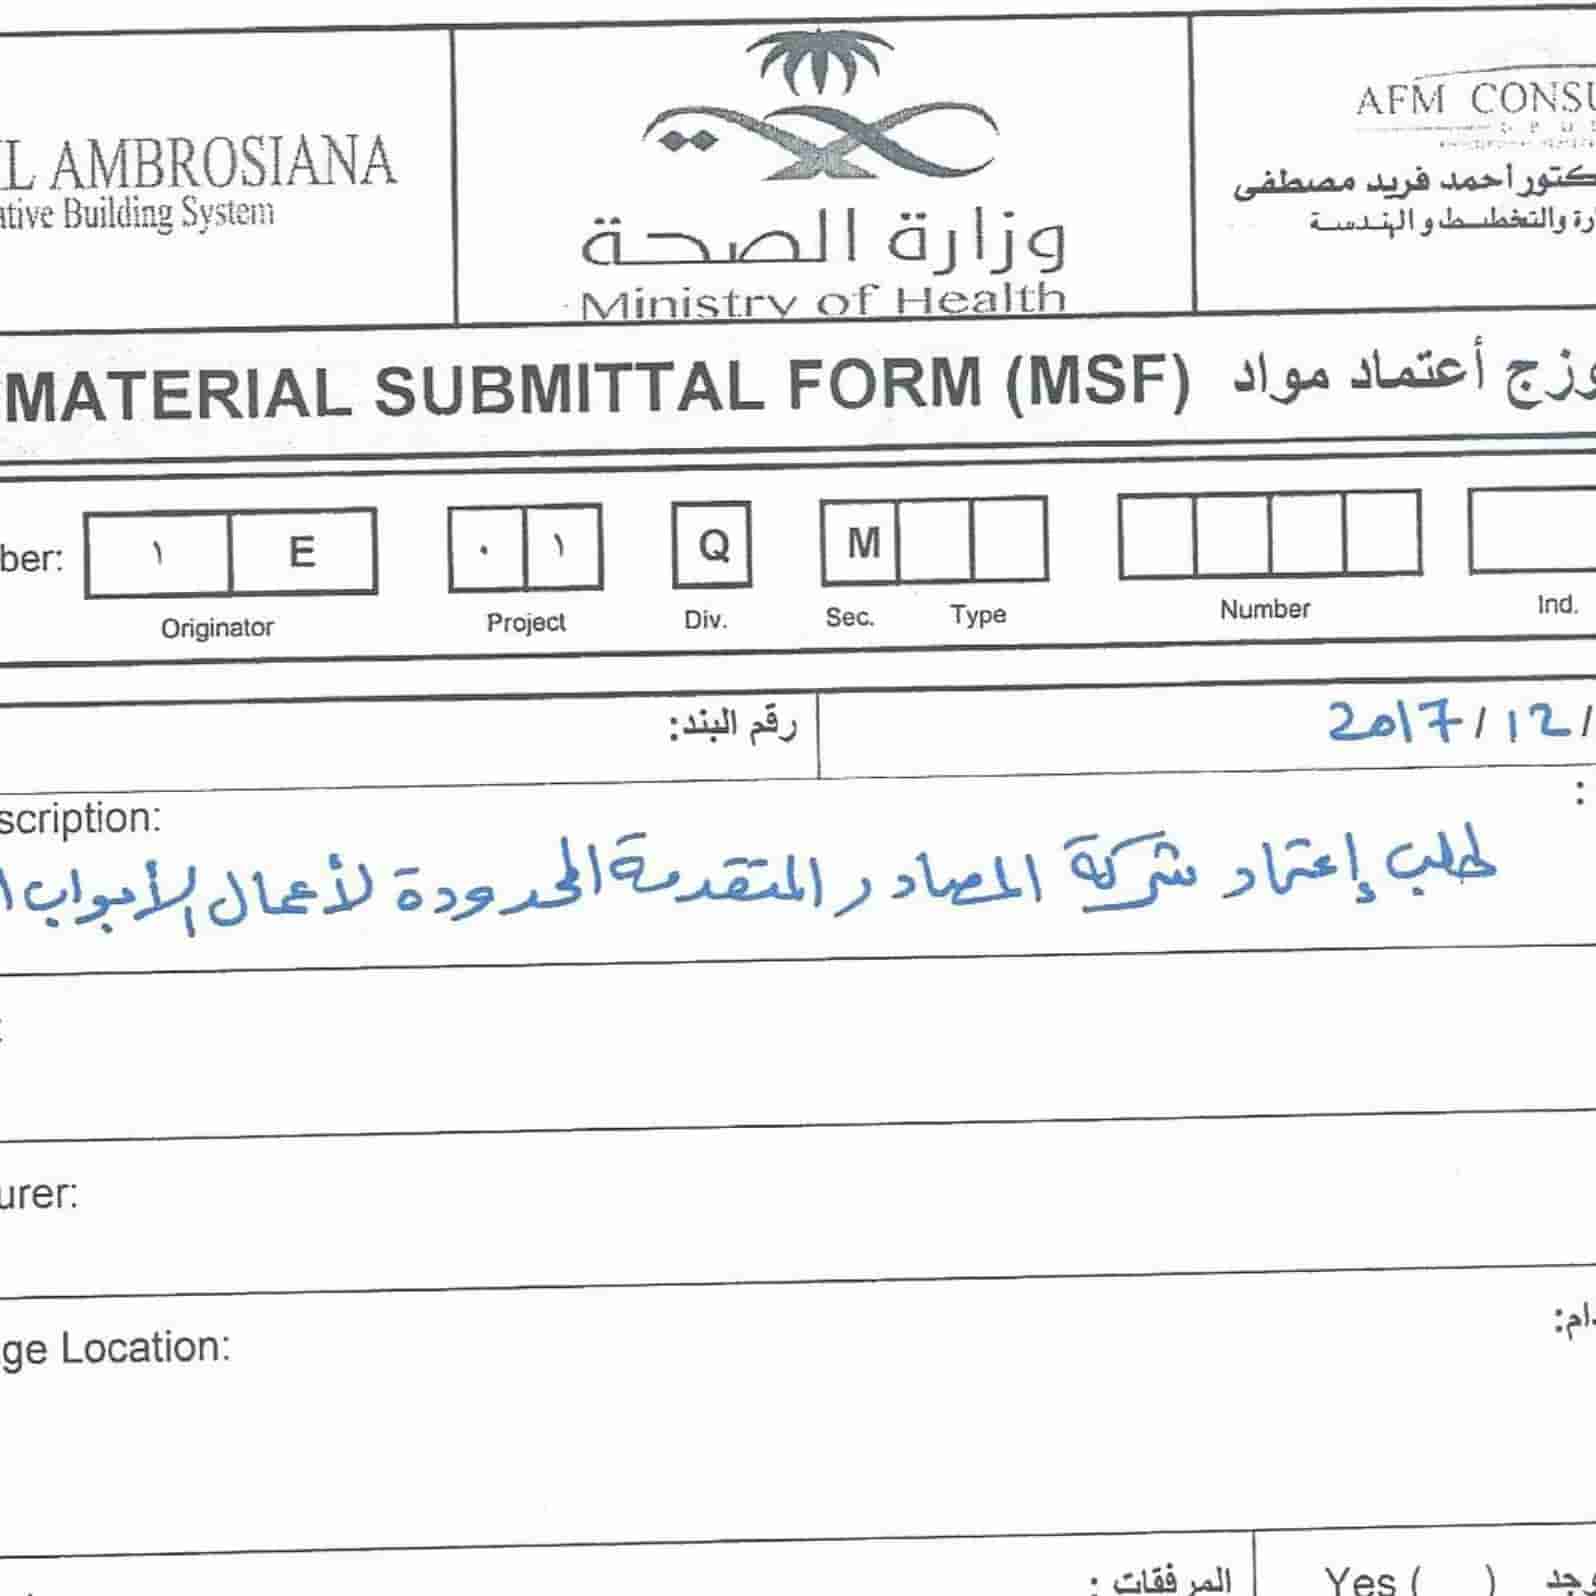 L AMBROSIANA
Building System
وزارة الصحة
Ministry of Health
AFM
أحمد فريد مصطفى
والتخطيط و الهندسة
MATERIAL SUBMITTAL FORM (MSF) أعتماد مواد
ber: ١ E ٠ ١ Q M
Originator Project Div. Sec. Type Number Ind.
رقم البند:
2017/12/
scription:
طلب إعتماد شركة المصادر المتقدمة المحدودة لأعمال الأبواب
urer:
ge Location:
ام:
المرفقات :
Yes ( )